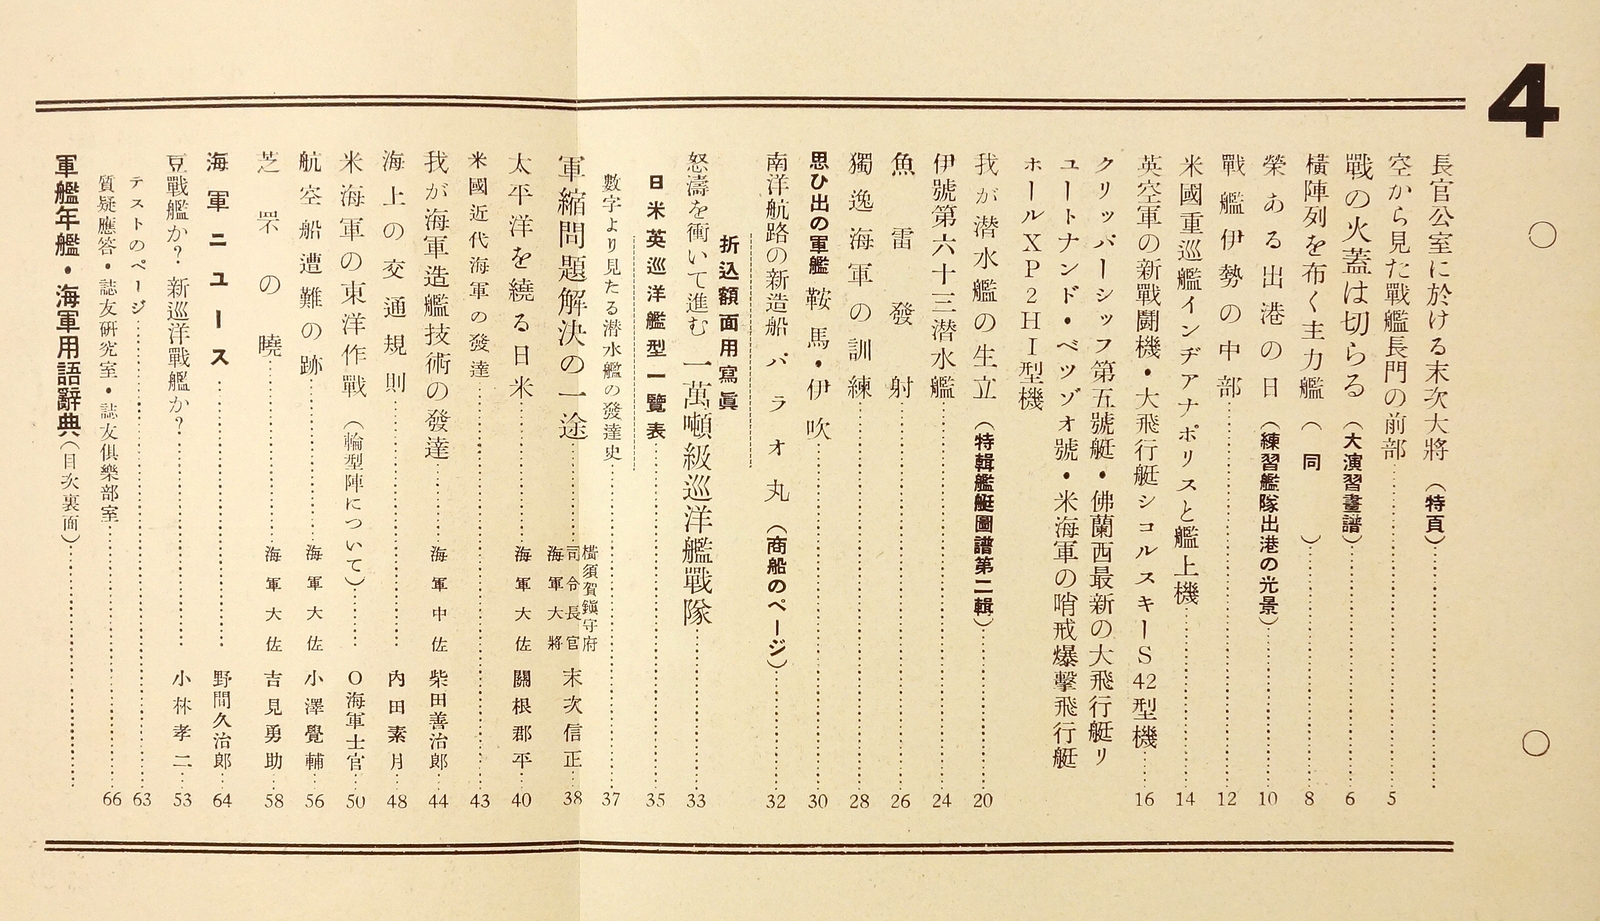 4
長官公室に於ける末次大將（特頁）
空から見た戰艦長門の前部 5
戰の火蓋は切らる（大演習畫譜） 6
橫陣列を布く主力艦（同） 8
榮ある出港の日（練習艦隊出港の光景） 10
戰艦伊勢の中部 12
米國重巡艦インヂアナポリスと艦上機 14
英空軍の新戰鬪機・大飛行艇シコルスキーS42型機 16
クリッパーシップ第五號艇・佛蘭西最新の大飛行艇リ
ユートナンド・ベツゾオ號・米海軍の哨戒爆擊飛行艇
ホールXP2HI型機
我が潜水艦の生立（特輯艦艇圖譜第二輯） 20
伊號第六十三潜水艦 24
魚雷發射 26
獨逸海軍の訓練 28
思ひ出の軍艦 鞍馬・伊吹 30
南洋航路の新造船パラオ丸（商船のページ） 32
折込額面用寫眞
怒濤を衝いて進む 一萬噸級巡洋艦戰隊 33
日米英巡洋艦型一覽表 35
數字より見たる潜水艦の發達史 37
軍縮問題解決の一途 橫須賀鎭守府司令長官海軍大將 末次信正 38
太平洋を繞る日米 海軍大佐 關根郡平 40
米國近代海軍の發達 43
我が海軍造艦技術の發達 海軍中佐 柴田善治郎 44
海上の交通規則 內田素月 48
米海軍の東洋作戰（輪型陣について） O海軍士官 50
航空船遭難の跡 海軍大佐 小澤覺輔 56
芝罘の曉 海軍大佐 吉見勇助 58
海軍ニュース 野間久治郎 64
豆戰艦か？新巡洋戰艦か？ 小林孝二 53
テストのページ 63
質疑應答・誌友硏究室・誌友俱樂部室 66
軍艦年艦・海軍用語辭典（目次裏面）